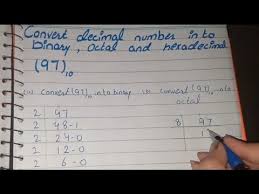 Convert decimal number in to
binary, Octal and hexadecimal
(97)10
(i) Convert (97)10 into binary (ii) Convert (97)10 into
octal
2 | 97
2 | 48-1
2 | 24-0
2 | 12-0
2 | 6-0
8 | 97
1